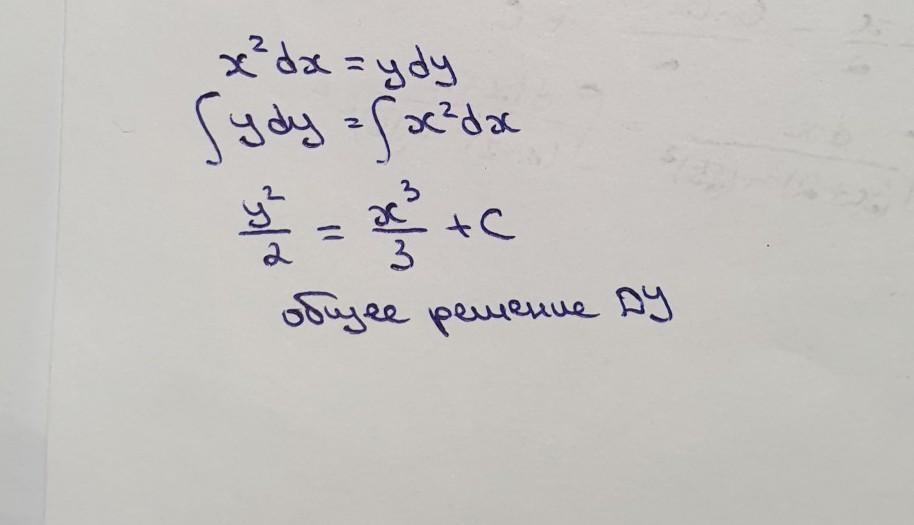 x² dx = y dy
∫ y dy = ∫ x² dx
y²/2 = x³/3 + C
общее решение ДУ